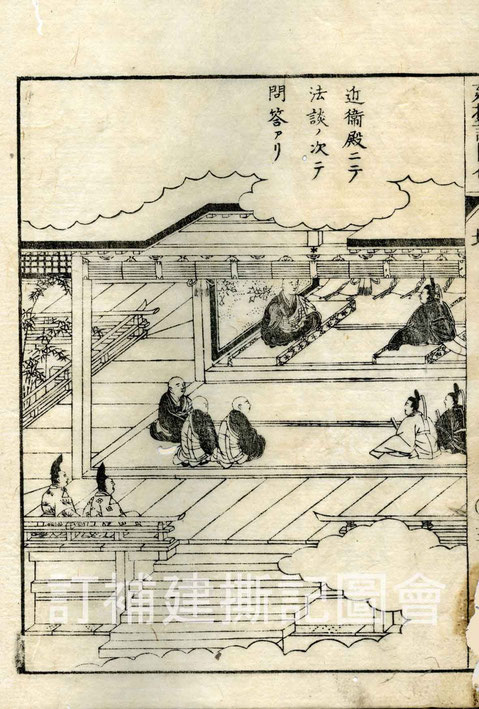 近衞殿ニテ
法談ノ次テ
問答アリ
訂補建撕記圖會